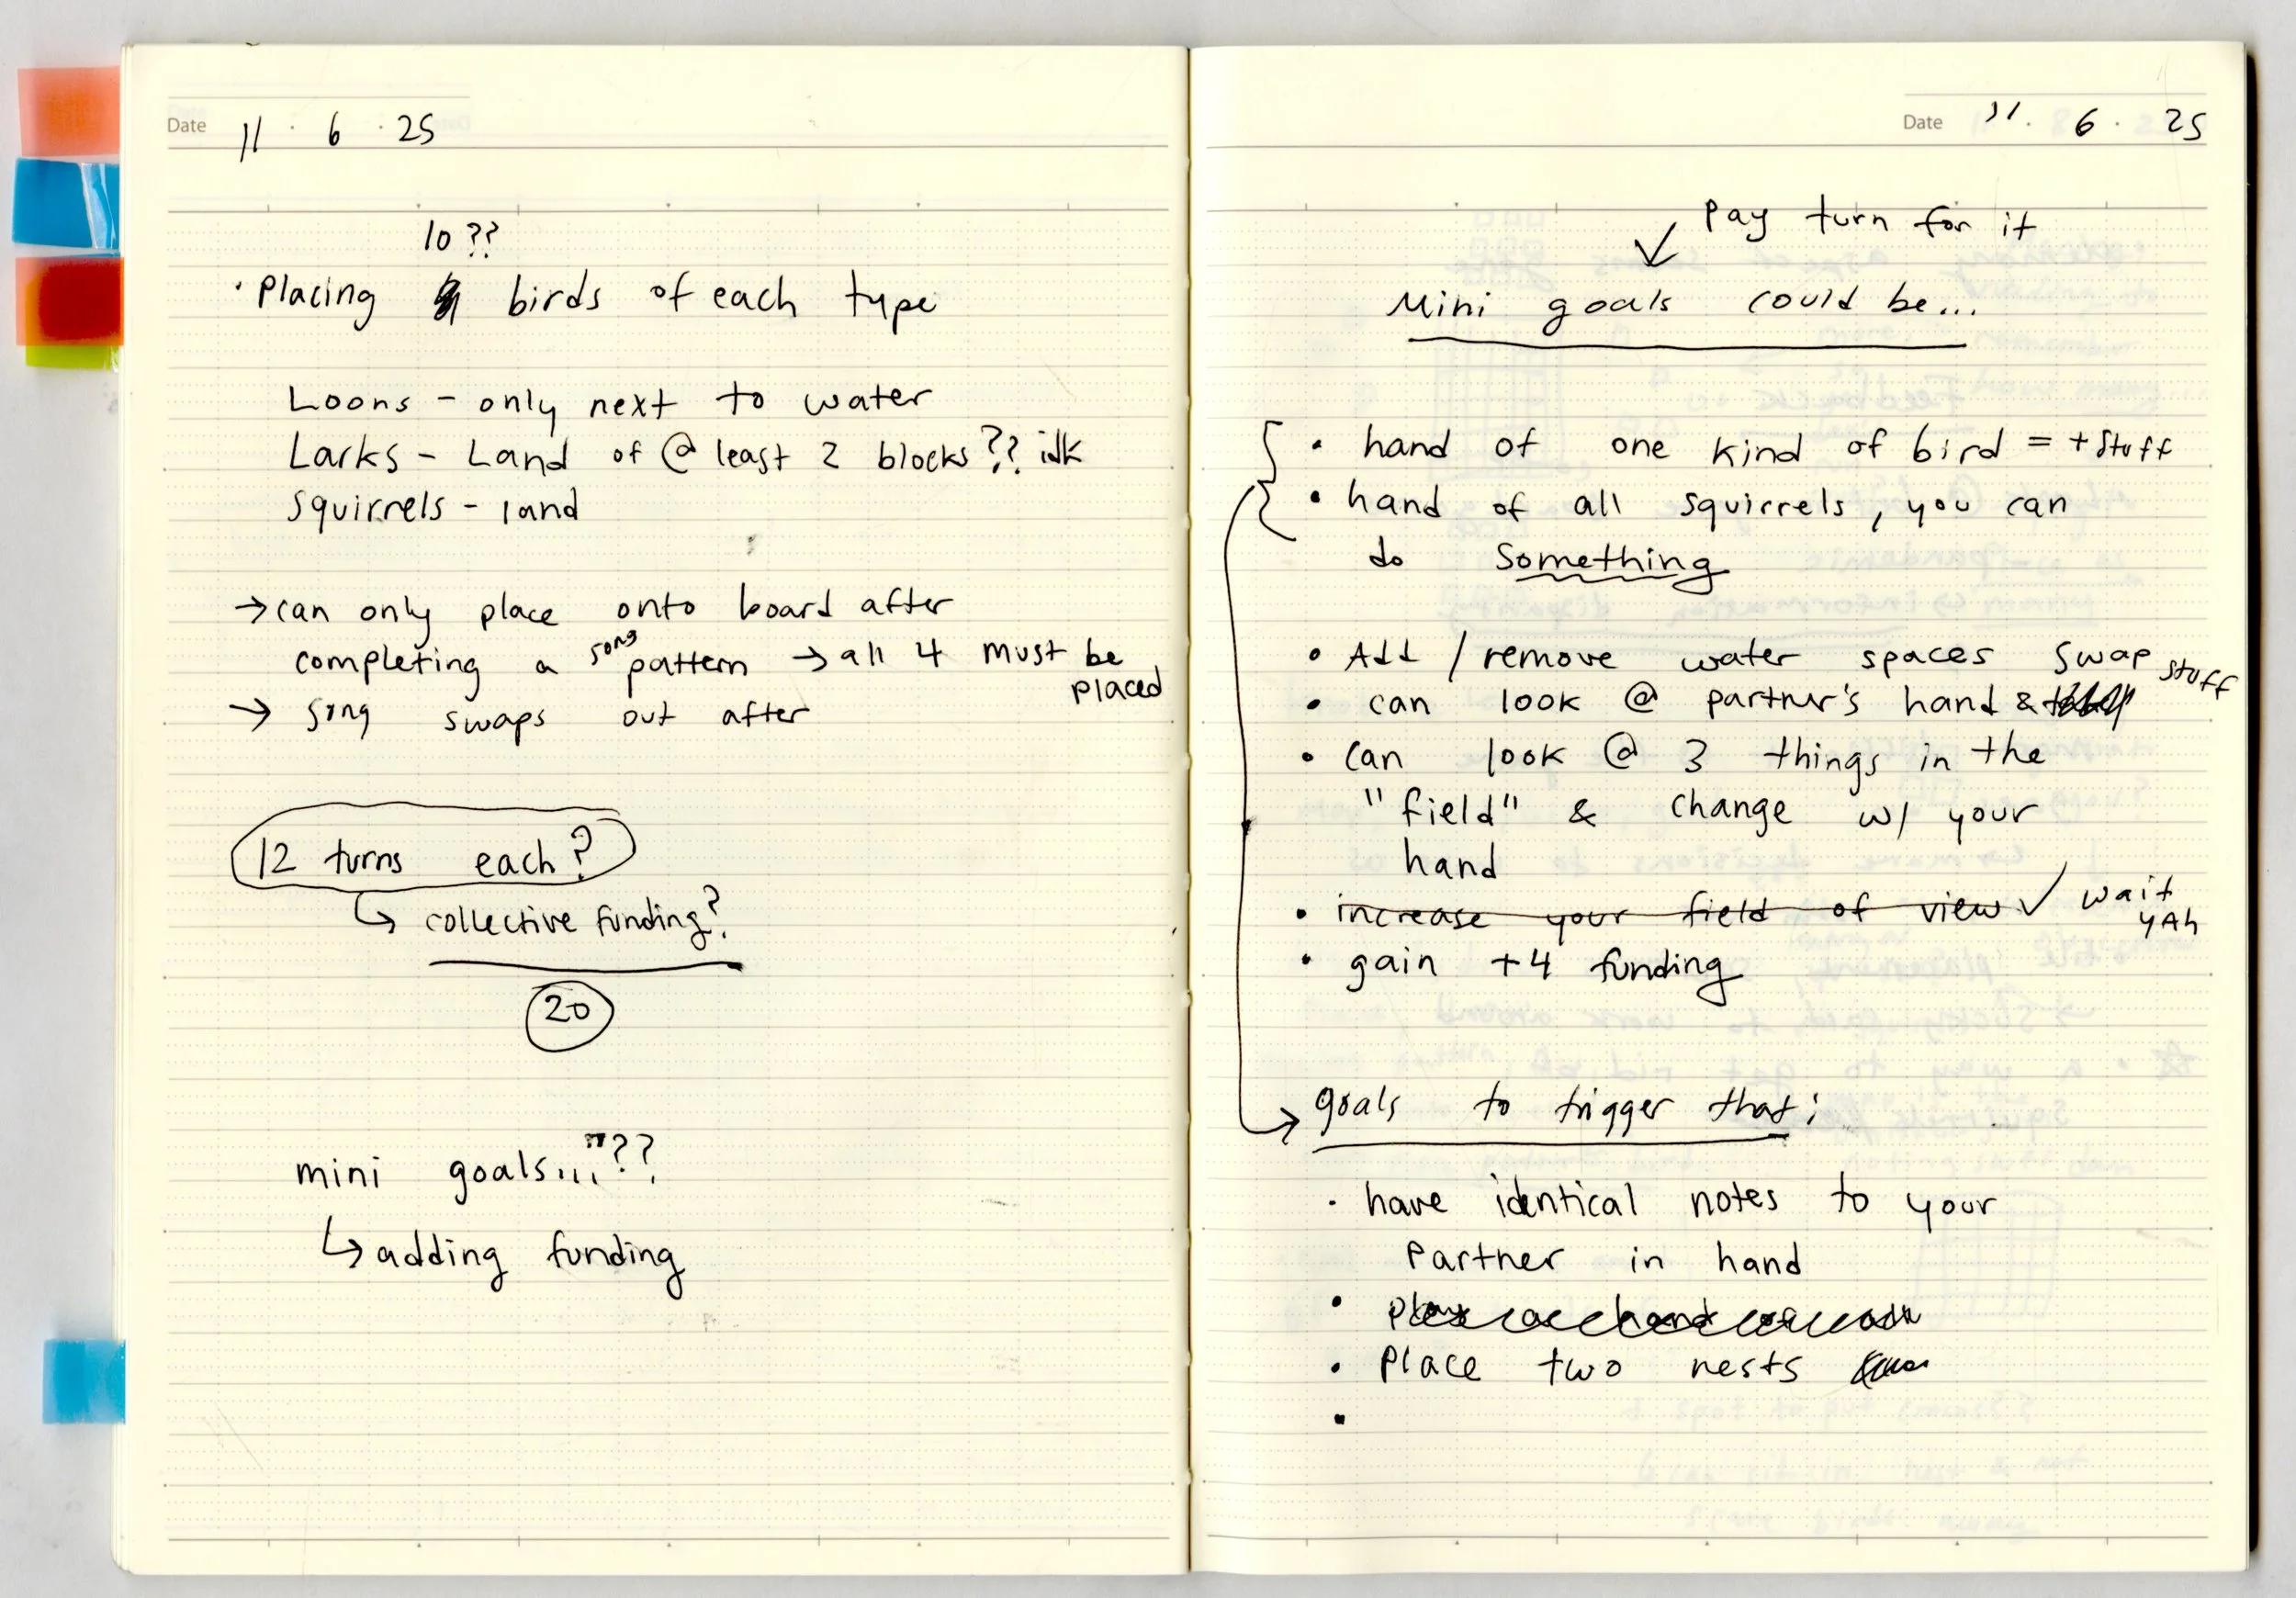 Date 11 · 6 · 25
10 ??
· Placing birds of each type
Loons - only next to water
Larks - Land of @ least 2 blocks ?? idk
Squirrels - land
→ can only place onto board after
completing a song pattern → all 4 must be placed
→ song swaps out after
12 turns each?
↳ collective funding?
20
mini goals...??
↳ adding funding
Date 11 · 6 · 25
Pay turn for it
↓
Mini goals could be...
• hand of one kind of bird = + stuff
• hand of all squirrels, you can
do something
• Add / remove water spaces
• can look @ partner's hand & swap stuff
• can look @ 3 things in the
"field" & change w/ your
hand
• increase your field of view ✓ wait yah
• gain +4 funding
→ goals to trigger that:
· have identical notes to your
Partner in hand
•
• Place two nests
•